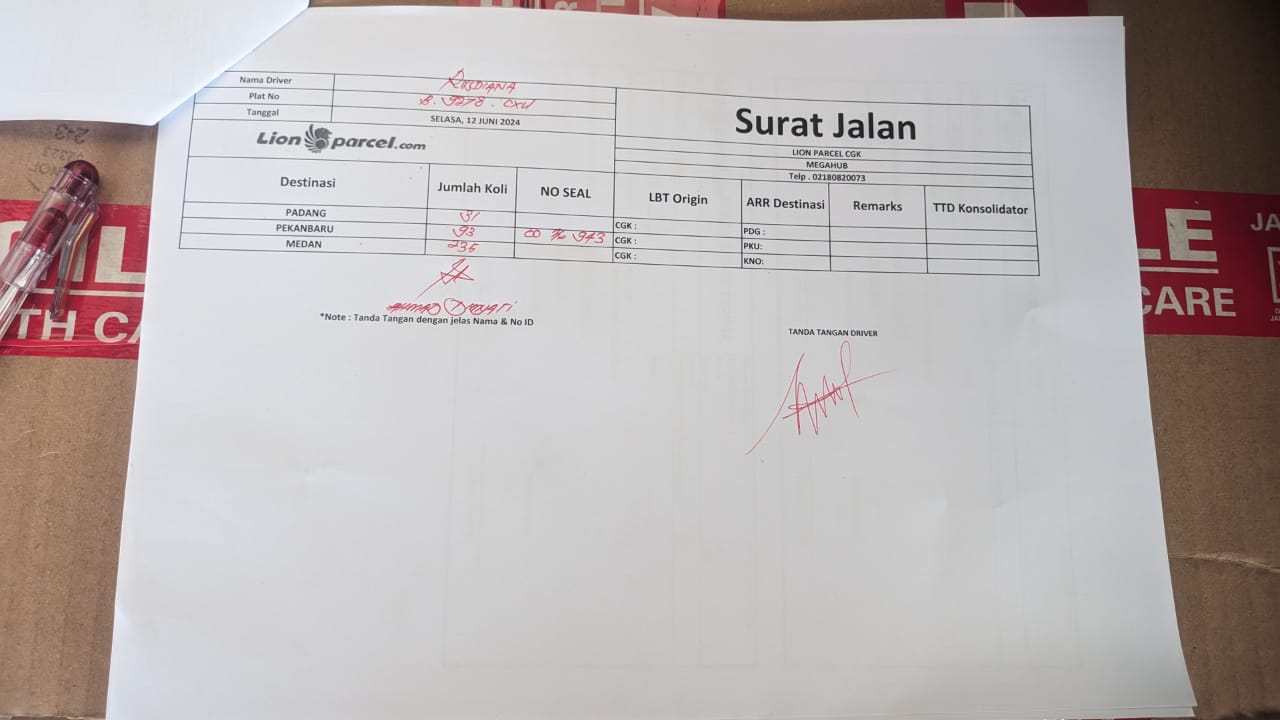 Nama Driver RUSDIANA
Plat No B. 9278. CXU
Tanggal SELASA, 12 JUNI 2024
Lion parcel.com
Surat Jalan
LION PARCEL CGK
MEGAHUB
Telp . 02180820073
Destinasi Jumlah Koli NO SEAL LBT Origin ARR Destinasi Remarks TTD Konsolidator
PADANG 31 CGK : PDG :
PEKANBARU 93 00 76 943 CGK : PKU:
MEDAN 235 CGK : KNO:
AHMAD
*Note : Tanda Tangan dengan jelas Nama & No ID
TANDA TANGAN DRIVER
TH CA
LE
CARE
JA